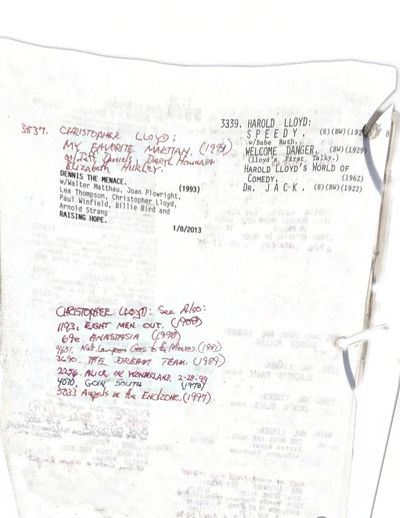 3837. CHRISTOPHER LLOYD:
MY FAVORITE MARTIAN. (1999)
w/ Jeff Daniels, Daryl Hannah
Elizabeth Hurley.
DENNIS THE MENACE.
w/Walter Matthau, Joan Plowright, (1993)
Lea Thompson, Christopher Lloyd,
Paul Winfield, Billie Bird and
Arnold Strang
RAISING HOPE.
1/8/2013
3339. HAROLD LLOYD:
SPEEDY. (S)(BW)(192
w/Babe Ruth.
WELCOME DANGER. (BW)(1929)
(Lloyd's First Talky.)
HAROLD LLOYD'S WORLD OF
COMEDY. (1962)
DR. JACK. (S)(BW)(1922)
CHRISTOPHER LLOYD: See Also:
1193. EIGHT MEN OUT. (1988)
69e. ANASTASIA (1998)
4651. Nat. Lampoon Goes to the Movies (1981)
3690. THE DREAM TEAM. (1989)
2256. ALICE IN WONDERLAND. 2-28-99
4070. GOIN' SOUTH (1978)
5033 Angels in the Endzone. (1997)